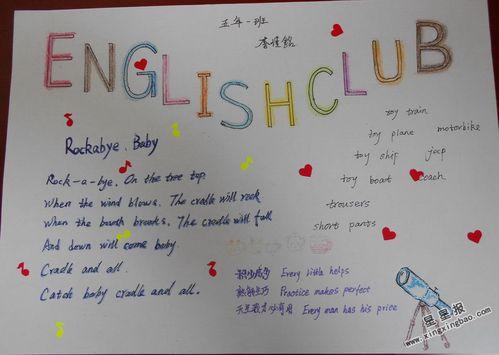 五年一班
ENGLISH CLUB
Rockabye, Baby
Rock-a-bye. On the tree top.
When the wind blows. The cradle will rock
When the bough breaks. The cradle will fall
And down will come baby.
Cradle and all.
Catch baby cradle and all.
toy train
toy plane motorbike
toy ship jeep
toy boat coach
trousers
short pants
积少成多 Every little helps
熟能生巧 Practice makes perfect
天生我才必有用 Every man has his price
星星报
www.xingxingbao.com